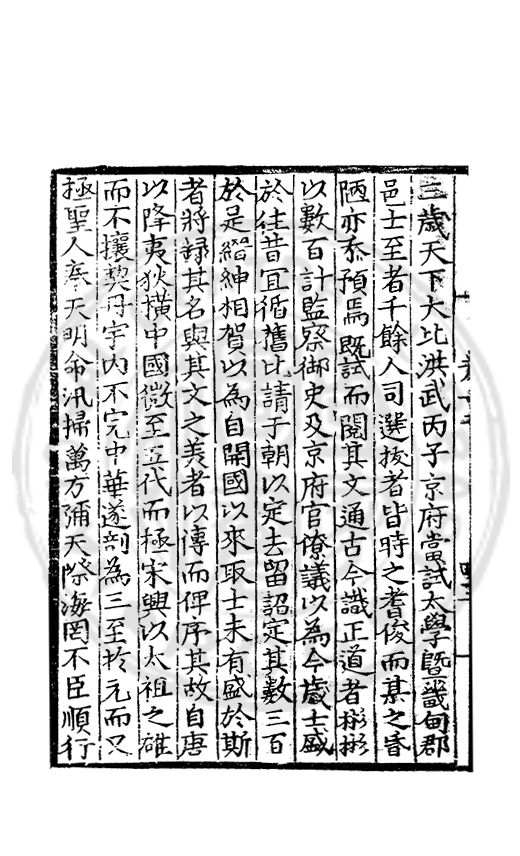 三歲天下大比洪武丙子京府當試太學暨畿甸郡
邑士至者千餘人司選拔者皆時之耆俊而某之昏
陋亦忝預焉既試而閱其文通古今識正道者彬彬
以數百計監察御史及京府官僚議以為今歲士盛
於往昔宜循舊比請于朝以定去留詔定其數三百
於是縉紳相賀以為自開國以來取士未有盛於斯
者將錄其名與其文之美者以傳而俾序其故自唐
以降夷狄橫中國微至五代而極宋興以太祖之雄
而不攘契丹宇內不完中華遂剖為三至於元而又
極聖人奉天明命汛掃萬方彌天際海罔不臣順行